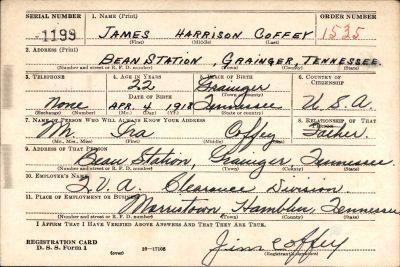 SERIAL NUMBER 1. NAME (Print) ORDER NUMBER
1199 JAMES HARRISON COFFEY 1535
(First) (Middle) (Last)
2. ADDRESS (Print)
BEAN STATION, GRAINGER, TENNESSEE.
(Number and street or R. F. D. number) (Town) (County) (State)
3. TELEPHONE 4. AGE IN YEARS 5. PLACE OF BIRTH 6. COUNTRY OF CITIZENSHIP
22 Grainger
DATE OF BIRTH (Town or county)
None APR. 4 1918 Tennessee U.S.A.
7. NAME OF PERSON WHO WILL ALWAYS KNOW YOUR ADDRESS 8. RELATIONSHIP OF THAT PERSON
Mr. Ira Coffey Father
(Mr., Mrs., Miss) (First) (Middle) (Last)
9. ADDRESS OF THAT PERSON
Bean Station, Grainger Tennessee.
(Number and street or R. F. D. number) (Town) (County) (State)
10. EMPLOYER'S NAME
T.V.A. Clearance Division
11. PLACE OF EMPLOYMENT OR BUSINESS
Morristown Hamblen, Tennessee
(Number and street or R. F. D. number) (Town) (County) (State)
I AFFIRM THAT I HAVE VERIFIED ABOVE ANSWERS AND THAT THEY ARE TRUE.
REGISTRATION CARD
D. S. S. Form 1 (over) 16-17105
Jim Coffey
(Registrant's signature)